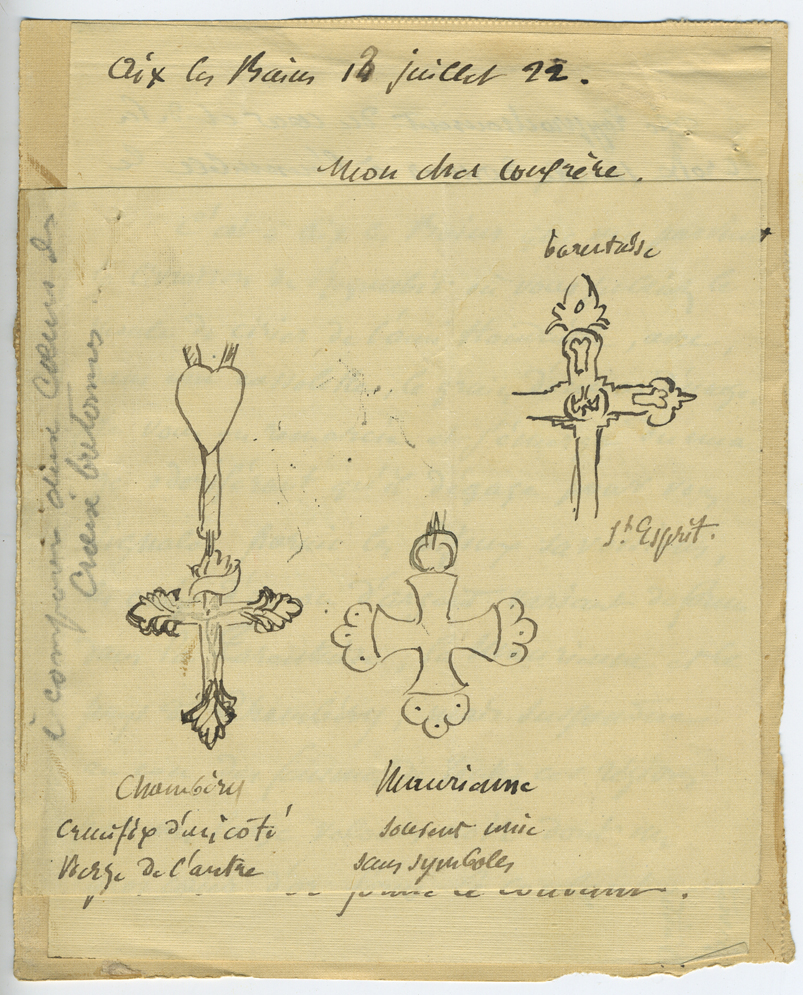 Aix les Bains 18 juillet 22.
Mon cher confrère.
tarentaise
St. Esprit.
à comparer aux Cœurs des
Croix bretonnes
Chambéry
crucifix d'un côté
Vierge de l'autre
Maurienne
souvent unie
sans symboles